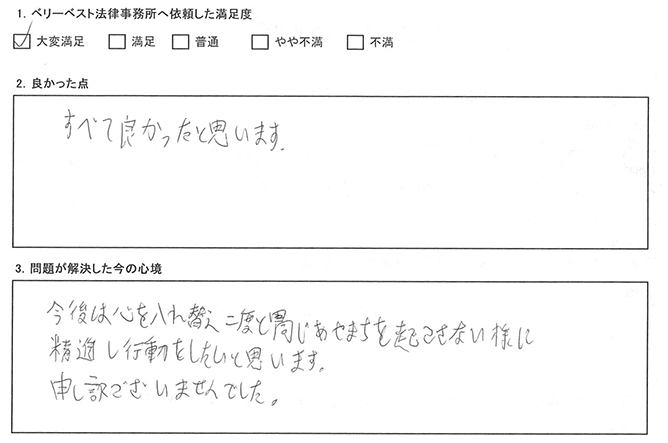 1. ベリーベスト法律事務所へ依頼した満足度
大変満足 満足 普通 やや不満 不満
2. 良かった点
すべて良かったと思います.
3. 問題が解決した今の心境
今後は心を入れ替え 二度と同じあやまちを起こさせない様に
精進し行動をしたいと思います.
申し訳ございませんでした。